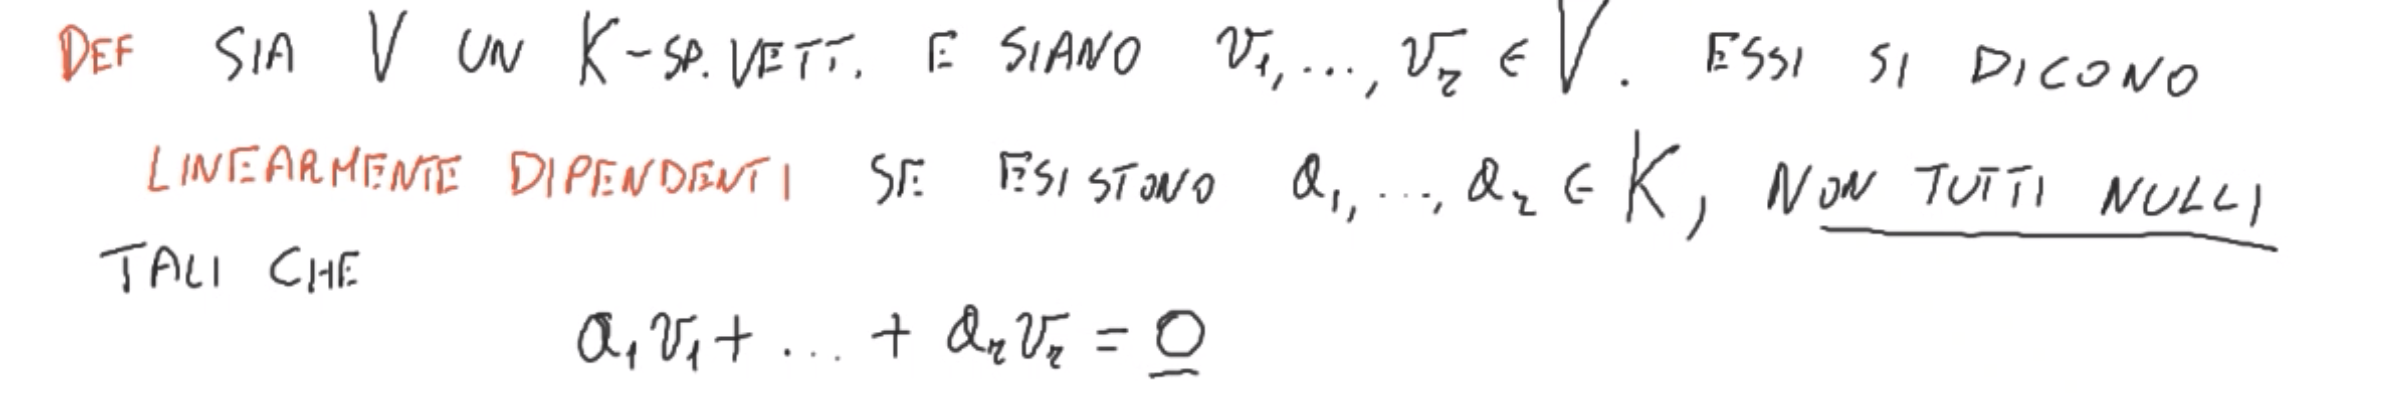 DEF SIA V UN K-SP. VETT. E SIANO v₁, ..., vᵣ ∈ V. ESSI SI DICONO
LINEARMENTE DIPENDENTI SE ESISTONO a₁, ..., aᵣ ∈ K, NON TUTTI NULLI
TALI CHE
a₁v₁ + ... + aᵣvᵣ = 0